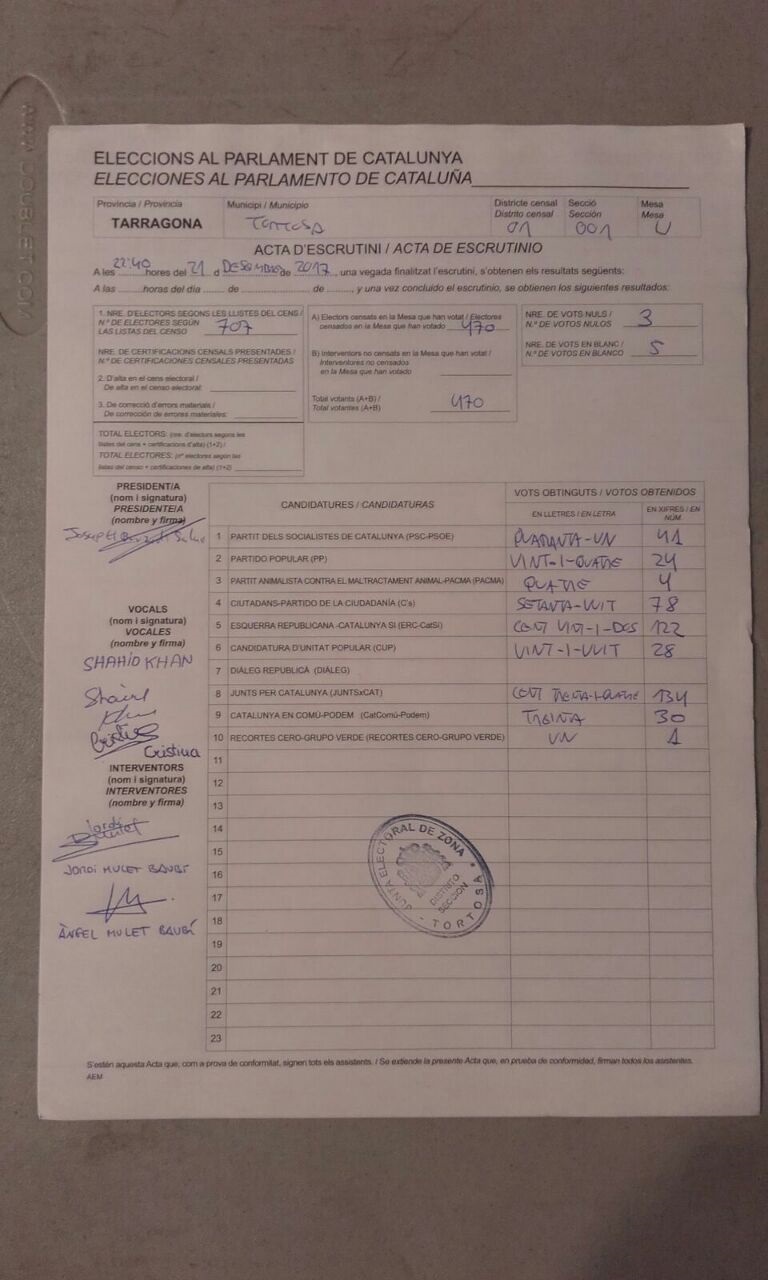 ELECCIONS AL PARLAMENT DE CATALUNYA
ELECCIONES AL PARLAMENTO DE CATALUÑA
Província / Provincia
TARRAGONA
Municipi / Municipio
TORTOSA
Districte censal
Distrito censal
01
Secció
Sección
001
Mesa
Mesa
U
ACTA D'ESCRUTINI / ACTA DE ESCRUTINIO
A les 22:40 hores del 21 d DESEMBRE de 2017, una vegada finalitzat l'escrutini, s'obtenen els resultats següents:
A las ........ horas del día ........ de ........ de ........, y una vez concluido el escrutinio, se obtienen los siguientes resultados:
1. NRE. D'ELECTORS SEGONS LES LLISTES DEL CENS /
N.º DE ELECTORES SEGÚN
LAS LISTAS DEL CENSO 707
NRE. DE CERTIFICACIONS CENSALS PRESENTADES /
N.º DE CERTIFICACIONES CENSALES PRESENTADAS
2. D'alta en el cens electoral /
De alta en el censo electoral:
3. De correcció d'errors materials /
De corrección de errores materiales:
TOTAL ELECTORS: (nre. d'electors segons les
llistes del cens + certificacions d'alta) (1+2) /
TOTAL ELECTORES: (nº electores según las
listas del censo + certificaciones de alta) (1+2)
A) Electors censats en la Mesa que han votat / Electores
censados en la Mesa que han votado 470
B) Interventors no censats en la Mesa que han votat /
Interventores no censados
en la Mesa que han votado
Total votants (A+B) /
Total votantes (A+B) 470
NRE. DE VOTS NULS /
N.º DE VOTOS NULOS 3
NRE. DE VOTS EN BLANC /
N.º DE VOTOS EN BLANCO 5
PRESIDENT/A
(nom i signatura)
PRESIDENTE/A
(nombre y firma)
VOCALS
(nom i signatura)
VOCALES
(nombre y firma)
SHAHID KHAN
Cristina
INTERVENTORS
(nom i signatura)
INTERVENTORES
(nombre y firma)
JORDI MULET BAUBÍ
ÀNGEL MULET BAUBÍ
CANDIDATURES / CANDIDATURAS
VOTS OBTINGUTS / VOTOS OBTENIDOS
EN LLETRES / EN LETRA
EN XIFRES / EN NÚM.
1 PARTIT DELS SOCIALISTES DE CATALUNYA (PSC-PSOE) QUARANTA-UN 41
2 PARTIDO POPULAR (PP) VINT-I-QUATRE 24
3 PARTIT ANIMALISTA CONTRA EL MALTRACTAMENT ANIMAL-PACMA (PACMA) QUATRE 4
4 CIUTADANS-PARTIDO DE LA CIUDADANÍA (C's) SETANTA-VUIT 78
5 ESQUERRA REPUBLICANA -CATALUNYA SÍ (ERC-CatSí) CENT VINT-I-DOS 122
6 CANDIDATURA D'UNITAT POPULAR (CUP) VINT-I-VUIT 28
7 DIÀLEG REPUBLICÀ (DIÀLEG)
8 JUNTS PER CATALUNYA (JUNTSxCAT) CENT TRENTA-I-QUATRE 134
9 CATALUNYA EN COMÚ-PODEM (CatComú-Podem) TRENTA 30
10 RECORTES CERO-GRUPO VERDE (RECORTES CERO-GRUPO VERDE) UN 1
11
12
13
14
15
16
17
18
19
20
21
22
23
JUNTA ELECTORAL DE ZONA
DISTRITO
SECCIÓN
- TORTOSA
S'estén aquesta Acta que, com a prova de conformitat, signen tots els assistents. / Se extiende la presente Acta que, en prueba de conformidad, firman todos los asistentes.
AEM